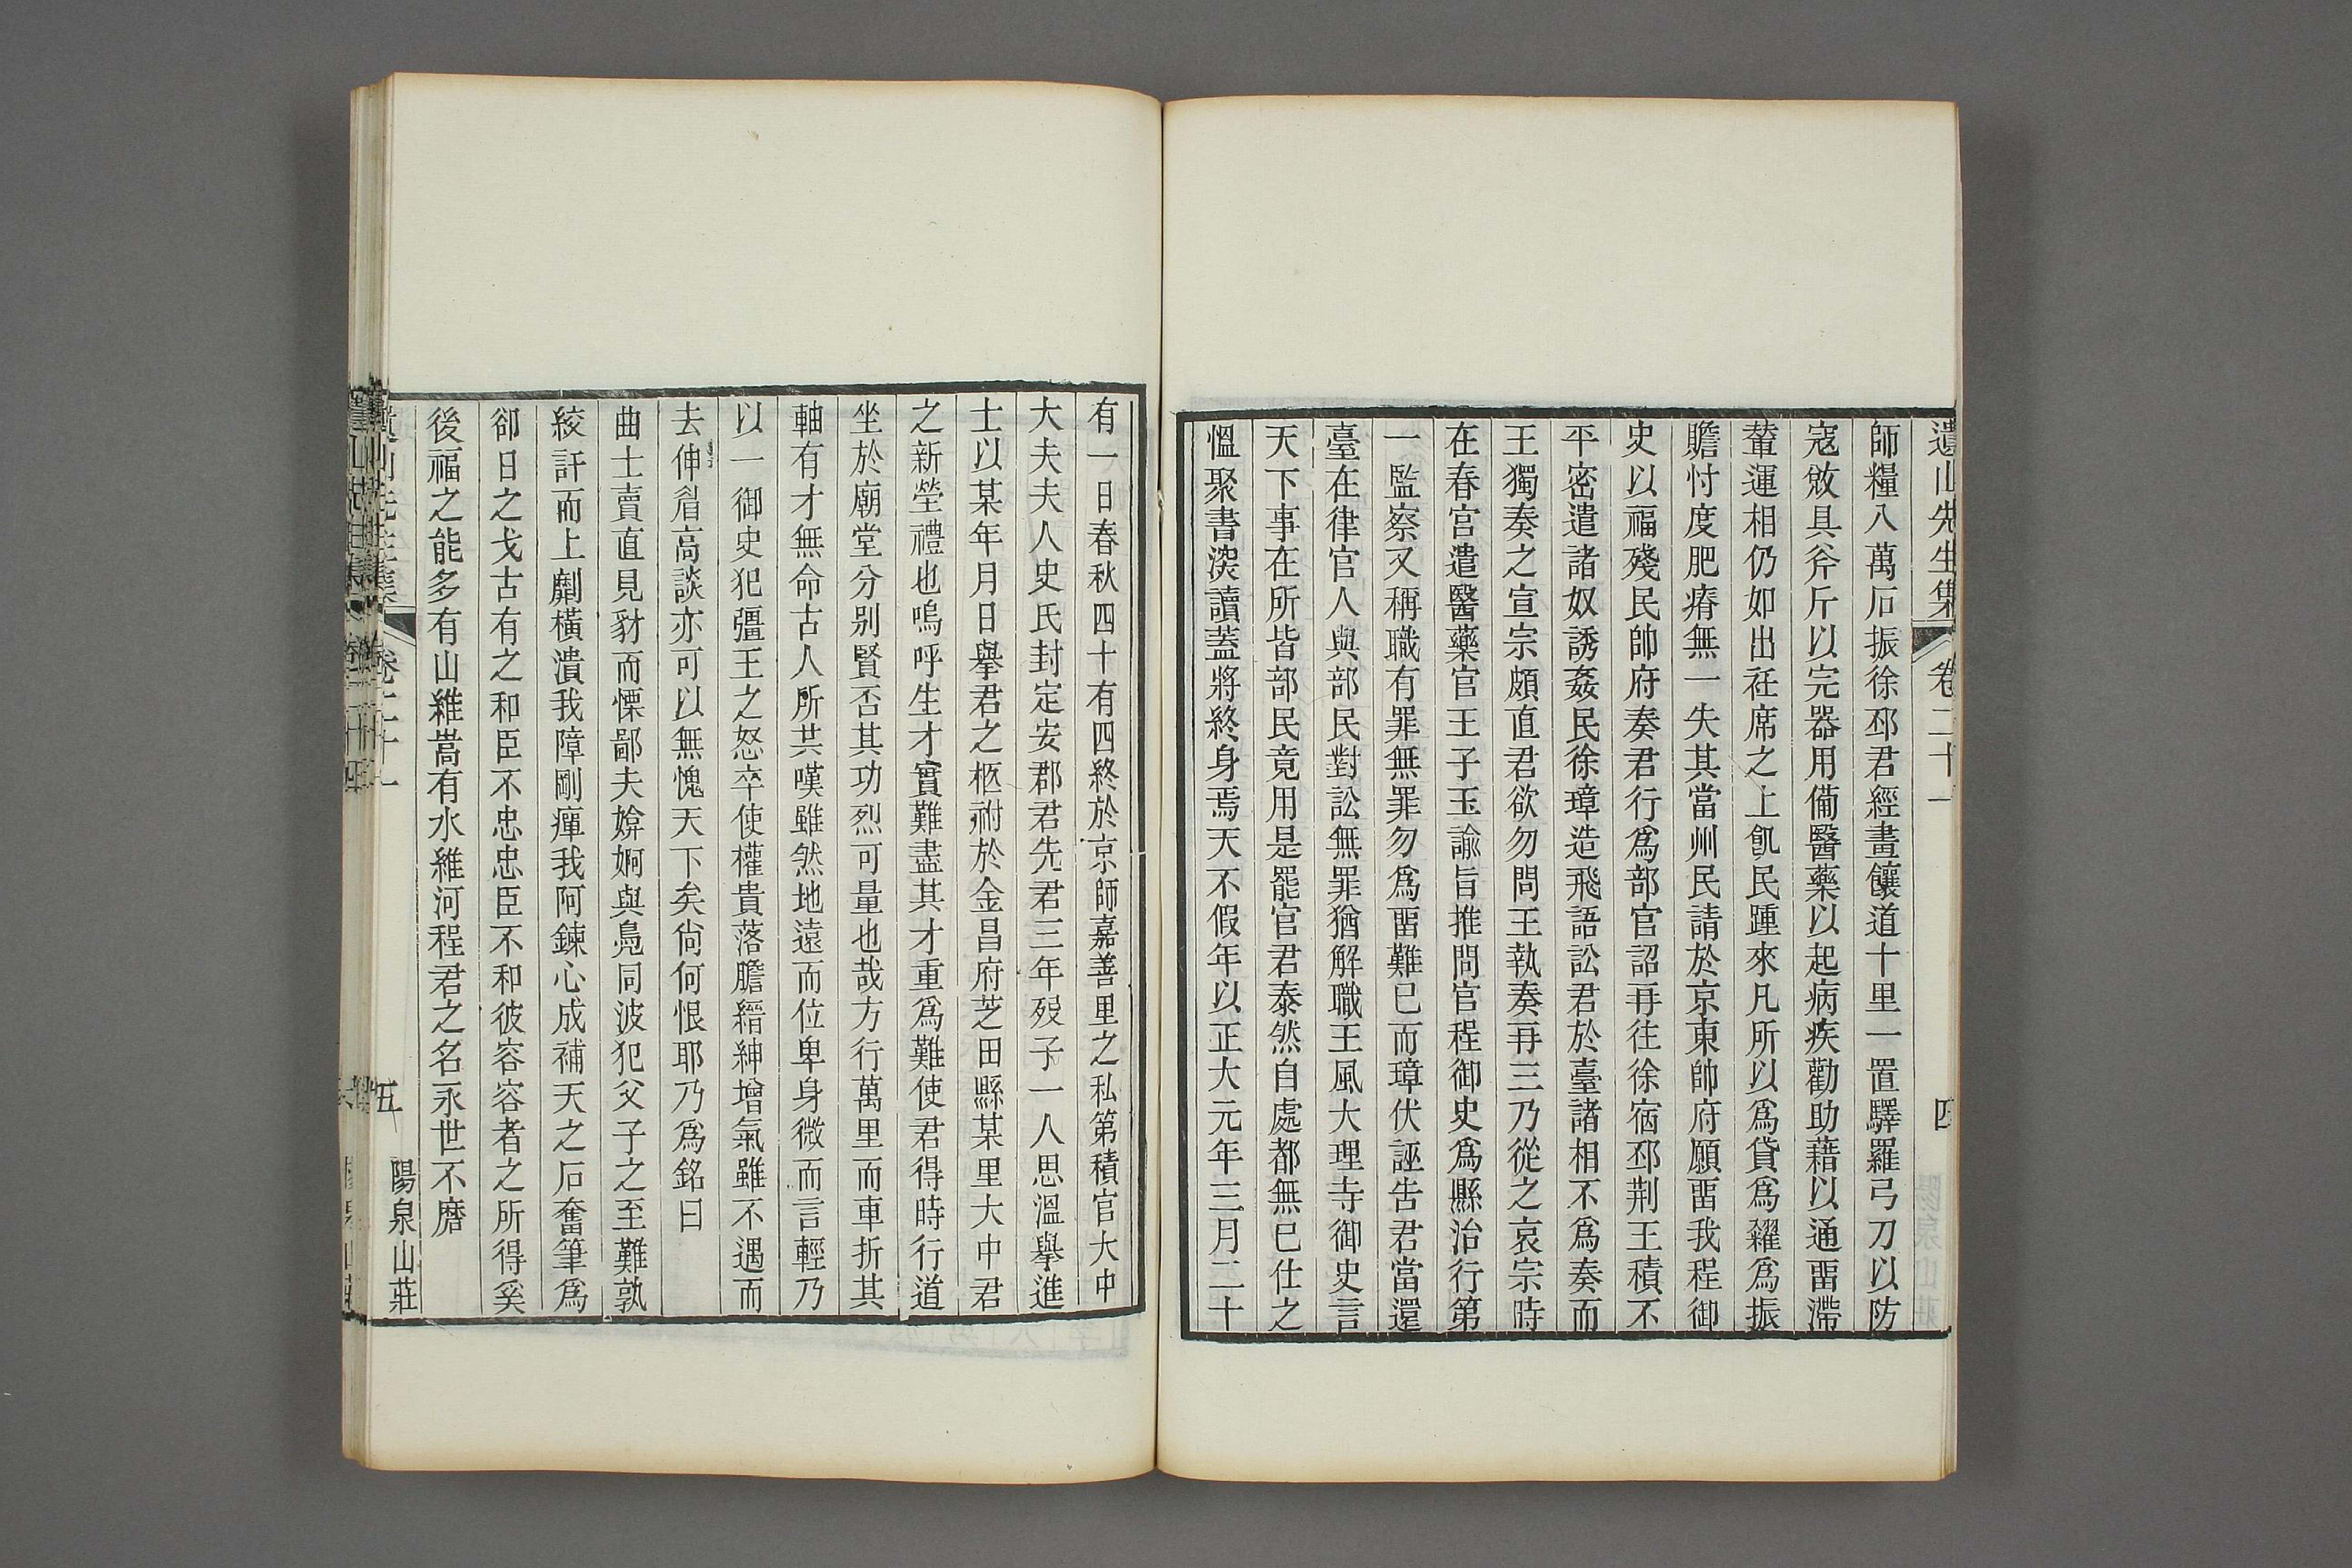 遺山先生集 卷二十一 四
師糧八萬石振徐邳君經畫饟道十里一置驛羅弓刀以防
寇敓具斧斤以完器用備醫藥以起病疾勸助藉以通畱滯
輦運相仍如出衽席之上飢民踵來凡所以爲貸爲糴爲振
贍忖度肥瘠無一失其當州民請於京東帥府願畱我程御
史以福殘民帥府奏君行爲部官詔再往徐宿邳荆王積不
平密遣諸奴誘姦民徐璋造飛語訟君於臺諸相不爲奏而
王獨奏之宣宗頗直君欲勿問王執奏再三乃從之哀宗時
在春宮遣醫藥官王子玉諭旨推問官程御史爲縣治行第
一監察又稱職有罪無罪勿爲畱難已而璋伏誣吿君當還
臺在律官人與部民對訟無罪猶解職王風大理寺御史言
天下事在所皆部民竟用是罷官君泰然自處都無已仕之
慍聚書深讀蓋將終身焉天不假年以正大元年三月二十
有一日春秋四十有四終於京師嘉善里之私第積官大中
大夫夫人史氏封定安郡君先君三年歿子一人思溫舉進
士以某年月日舉君之柩祔於金昌府芝田縣某里大中君
之新塋禮也嗚呼生才實難盡其才重爲難使君得時行道
坐於廟堂分别賢否其功烈可量也哉方行萬里而車折其
軸有才無命古人所共嘆雖然地遠而位卑身微而言輕乃
以一御史犯彊王之怒卒使權貴落膽縉紳增氣雖不遇而
去伸眉高談亦可以無愧天下矣尙何恨耶乃爲銘曰
曲士賣直見豺而慄鄙夫媕婀與鳧同波犯父子之至難孰
絞訐而上劘橫潰我障剛癉我阿鍊心成補天之石奮筆爲
卻日之戈古有之和臣不忠忠臣不和彼容容者之所得奚
後福之能多有山維嵩有水維河程君之名永世不磨
遺山先生集 卷二十一 五 陽泉山莊